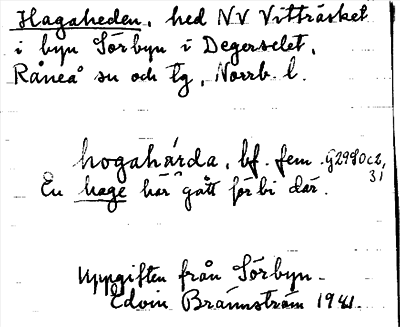 Hagaheden, hed NV Vitträsket
i byn Sörbyn i Degerselet,
Råneå sn och tg, Norrb. l.
hogahárda, bf. fem. G2980c2,
31
En hage har gått förbi där.
Uppgiften från Sörbyn
Edvin Brännström 1941.